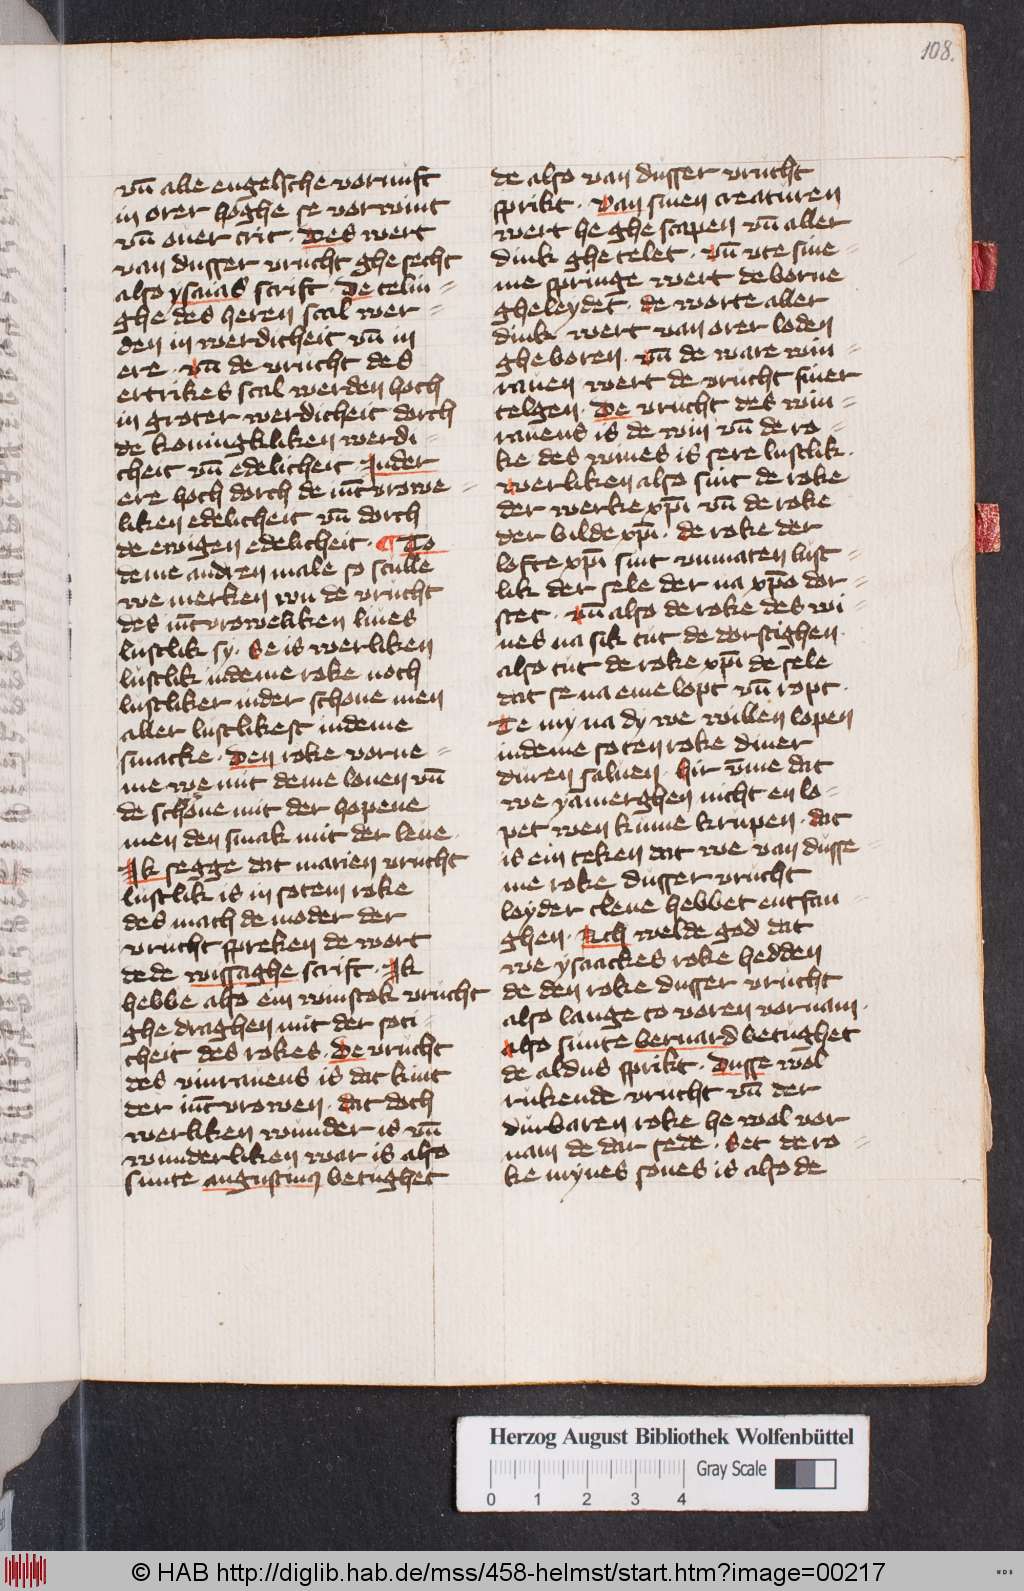 108.
vn̄ alle engelsche vornuft
in orer hoghe se vorwint
vn̄ ouer trit · Des wert
van dusser vrucht ghe secht
also ysaias scrift · De telin=
ghe des heren scal wer=
den in werdicheit vn̄ in
ere · vn̄ de vrucht des
ertrikes scal werden hoch
in groter werdicheit dorch
de koningkliken werdi=
cheit vn̄ edelicheit Inder
ere hoch dorch de iūcvrowe=
liken edelicheit vn̄ dorch
de ewigen edelicheit · ¶ To
deme andren male so sculle
we merken wu de vrucht
des iūcvroweliken liues
lustlik sy · Se is werliken
lustlik indeme roke noch
lustliker inder schone men
aller lustlikest indeme
smacke · Den roke vorne=
me we mit deme louen vn̄
de schone mit der hopene
men den smak mit der leue ·
Ik segge dat marien vrucht
lustlik is in sotem roke
des mach de moder der
vrucht spreken de wort
de de wissaghe scrift · Ik
hebbe also ein winstok vrucht
ghe draghen mit der soti=
cheit des rokes · De vrucht
des winrauens is dat kint
der iūcvrowen · dat doch
werliken wunder is vn̄
wunderliken war is also
sunte augustinus betughet
de also van dusser vrucht
sprikt · Van sinen creaturen
wert he ghe scapen vn̄ aller
dink ghe telet · vn̄ vte sine=
me springe wert de borne
gheleydet · de worte aller
dink wert van orer loden
gheboren · vn̄ de ware win=
rauen wert de vrucht siner
telgen · De vrucht des win=
rauens is de win vn̄ de ro=
ke des wines is sere lustlik ·
werliken also sint de roke
der werke xpī vn̄ de roke
der bilde xpī · de roke der
lofte xpī sint vnmaten lust=
lik der sele der na xpō dor=
stet · vn̄ also de roke des wi=
nes na sik tut de dorstighen ·
also tut de roke xpī de sele
dat se na eme lopt vn̄ ropt ·
Te my na dy we willen lopen
indeme soten roke diner
duren saluen · hir v̄me dat
we yamerghen nicht en lo=
pet wen kume krupen · dat
is ein teken dat we van dusse=
me roke dusser vrucht
leyder cleue hebbet entfan=
ghen · Ach welde god dat
we ysaackes roke hedden
de den roke dusser vrucht
also lange to voren vornam ·
also sunte bernard betughet
de aldus sprikt · Dusse wol
rukende vrucht vn̄ der
durbaren roke he wol vor
nam de dar sede · Set de ro=
ke mynes sones is also de
Herzog August Bibliothek Wolfenbüttel
Gray Scale
0 1 2 3 4
© HAB http://diglib.hab.de/mss/458-helmst/start.htm?image=00217